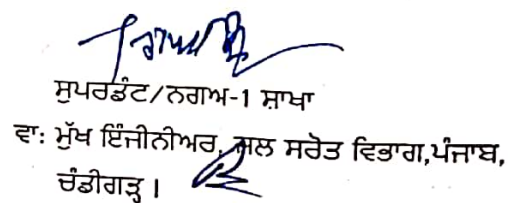 ਸੁਪਰਡੰਟ/ਨਗਅ-1 ਸ਼ਾਖਾ
ਵਾ: ਮੁੱਖ ਇੰਜੀਨੀਅਰ, ਜਲ ਸਰੋਤ ਵਿਭਾਗ,ਪੰਜਾਬ,
ਚੰਡੀਗੜ੍ਹ।